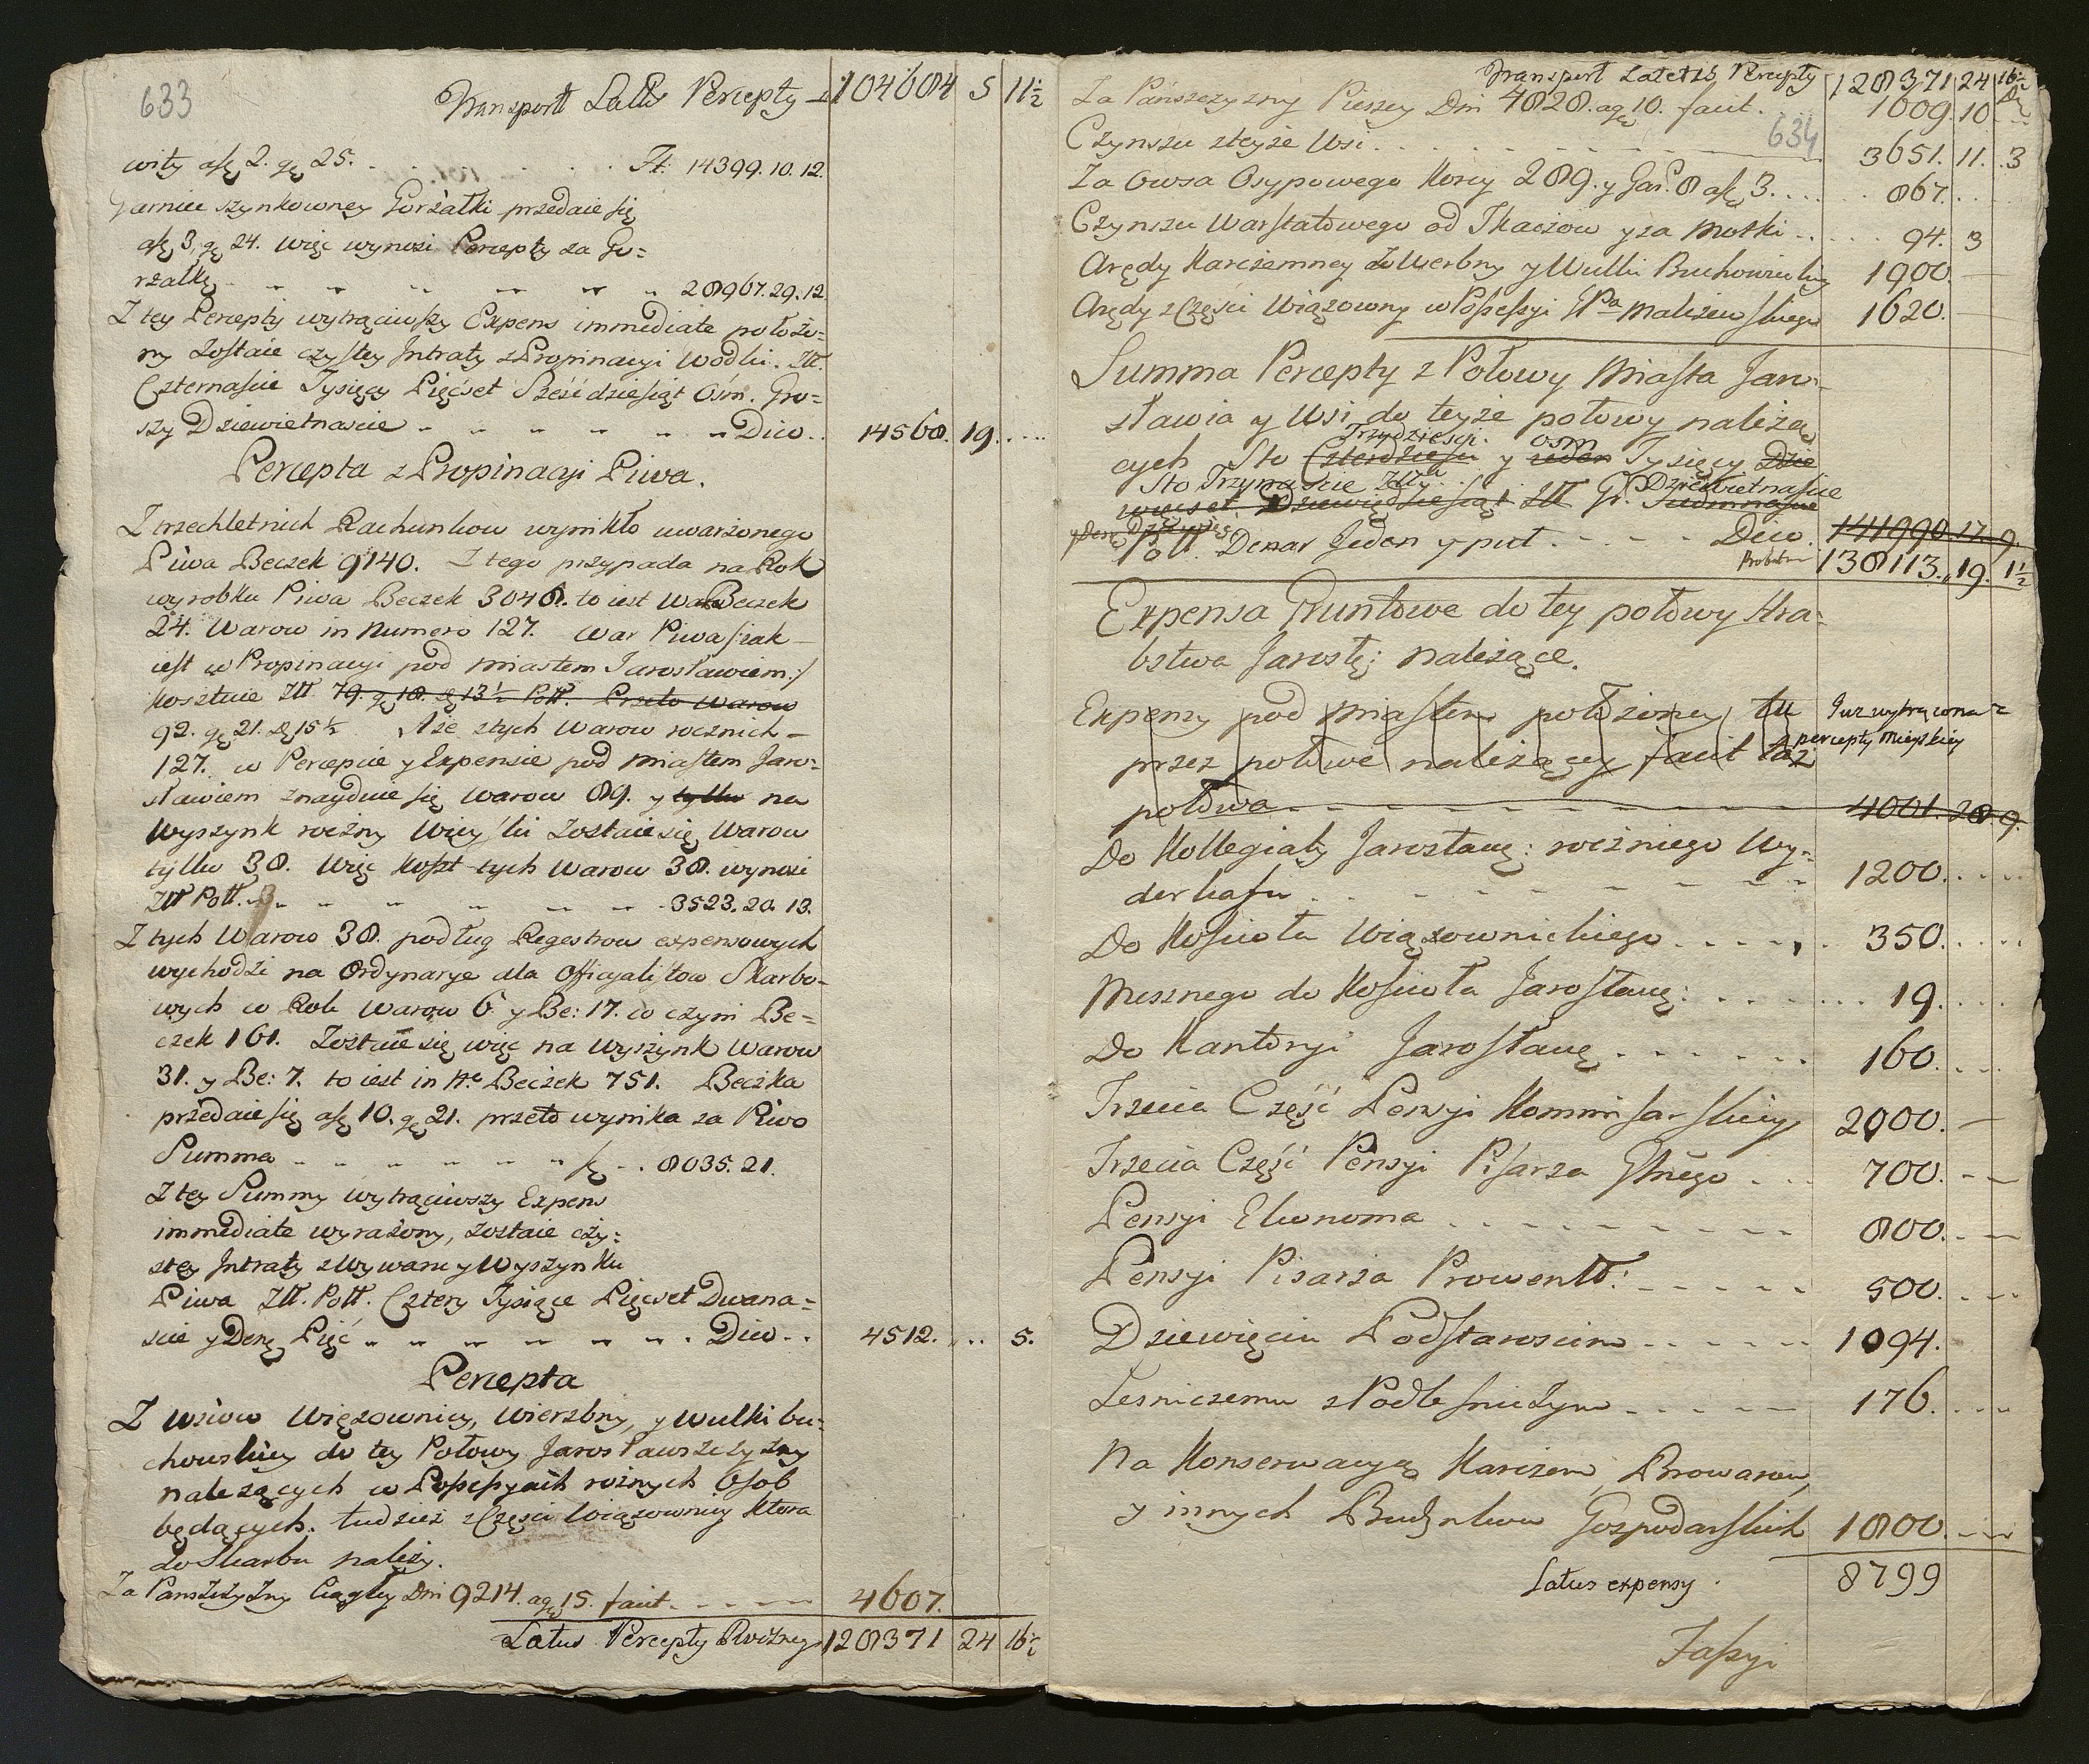 633
Transport Latus Percepty 104684 5 11½
wity a 2. g 25. Zł. 14399.10.12.
Garniec szynkowney Gorzałki przedaie się
a 3. g 24. więc wynosi Percepty za Go=
rzałkę 28967.29.12
Z tey Percepty wytrąciwszy Expens immediate położo=
ny zostaie czystey Intraty z Propinacyi Wodki. Złł.
Czternaście Tysięcy Pięcset Sześćdziesiąt Osm. Gro=
szy Dziewietnascie Dico.. 14568. 19....
Percepta z Propinacyi Piwa.
Z trzechletnich Rachunkow wynikło uwarzonego
Piwa Beczek 9140. Z tego przypada na Rok
wyrobku Piwa Beczek 3048. to iest War Beczek
24. Warow in Numero 127. War Piwa /:iak
iest w Propinacyi pod Miastem Jarosławiem:/
kosztuie Złł. 79. g 18. d 13½ Poll. Przeto Warow
92. g 21. d 15½ A że z tych Warow rocznich
127. w Percepcie y Expensie pod Miastem Jaro=
sławiem znayduie się Warow 89. y tylko na
Wyszynk roczny Wieyski zostaie się Warow
tylko 38. Więc koszt tych Warow 38. wynosi
Złł Poll. 3523.20.13.
Z tych Warow 38. podług Regestrow expensowych
wychodzi na Ordynarye dla Officyalistow Skarbo=
wych w Rok Warow 6 y Be: 17. w czym Be=
czek 161. Zostaie się więc na Wyszynk Warow
31. y Be: 7. to iest in N° Beczek 751. Beczka
przedaie się a 10. g 21. przeto wynika za Piwo
Summa 8035.21.
Z tey Summy wytrąciwszy Expens
immediate wyrażony, zostaie czy=
stey Intraty z Wywaru y Wyszynku
Piwa Złł. Poll. Cztery Tysiące Pięcset Dwana=
scie y Dena Pięć Dico.. 4512. ... 5.
Percepta
Z Wsiow Więzownicy, Wierzbny, y Wulki bu=
chowskiey do tey Połowy Jarosławszczyzny
należących w Possessyach roznych Osob
będących. tudzież z Części Wiązownicy ktora
do Skarbu należy.
Za Panszczyzny Ciągłey Dni 9214. a g 15. facit 4607.
Latus Percepty Roczney 128371 24 16½
Transport Lateris Percepty 128371 24 16½
Za Panszczyzny Pieszey Dni 4828. a g 10. facit. 1609. 10
634
Czynszu z teyże Wsi 3651. 11. 3
Za Owsa Osypowego Korcy 289. y Gar: 8 a 3. 867.
Czynszu Warstatowego od Tkaczow y za Motki 94. 3
Arędy Karczemney z Wierbny y Wulki Buchowskiey 1900.
Arędy z Części Wiązowny w Possessyi JPa Maliszewskiego 1620.
Summa Percepty z Połowy Miasta Jaro=
sławia y Wsi do teyże połowy należą
Trzydzieści osm
cych Sto Czterdzieści y ieden Tysięcy Dzie
Sto Trzynaście Złty Dziewietnaście
więcset Dziewiędziesiąt Złł Gr. Siedmnaście
Poll. Denar Jeden y puł Dico. 141990.17.9.
138113.,19. 1½
Expensa Gruntowe do tey połowy Hra=
bstwa Jarosł: należące.
Expensy pod Miastem połozoney tu
Iuz wytrącona z
percepty Mieyskiey
przez połowe należącey facit taż
połowa 4001.28.9.
Do Kollegiaty Jarosławs: roczniego Wy=
derkafu 1200.
Do Kościoła Wiązownickiego 350.
Mesznego do Kościoła Jarosławs: 19.
Do Kantoryi Jarosławs 160.
Trzecia Część Pensyi Kommissarskiey 2000.
Trzecia Część Pensyi Pisarza Głnego 700.
Pensyi Ekonoma 800.
Pensyi Pisarza Prowentt: 500.
Dziewięciu Podstarosciom 1094.
Lesniczemu z Podlesniczym 176.
Na Konserwacyą Karczem, Browarow,
y innych Budynkow Gospodarskich 1800
Latus expensy. 8799